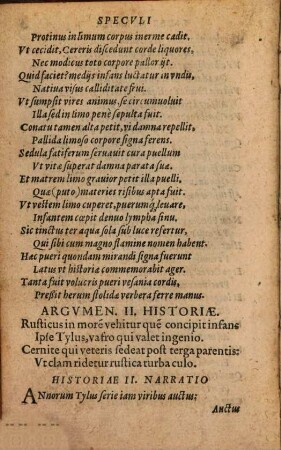 SPECVLI
Protinus in limum corpus inerme cadit.
Vt cecidit, Cereris discedunt corde liquores,
Nec modicus toto corpore pallor ijt.
Quid faciet? medijs infans luctatur in vndis,
Natiua visus calliditate frui.
Vt sumpsit vires animus, se circumuoluit
Illa sed in limo penè sepulta fuit.
Conatu tamen alta petit, vi damna repellit,
Pallida limoso corpore signa ferens.
Sedula fatiferum seruauit cura puellum
Vt vita superat damna parata sua.
Et matrem limo grauior petit illa puelli,
Quæ (puto) materies risibus apta fuit.
Vt vestem limo cuperet, puerumq́; leuare,
Infantem cœpit denuo lympha sinu,
Sic tinctus ter aqua sola sub luce refertur,
Qui sibi cum magno flamine nomen habent.
Hac pueri quondam mirandi signa fuerunt
Latus vt historia commemorabit ager.
Tanta fuit volucris pueri vesania cordis,
Pressit herum stolida verbera ferre manus.
ARGVMEN. II. HISTORIÆ.
Rusticus in morē vehitur quē concipit infans
Ipse Tylus, vafro qui valet ingenio.
Cernite qui veteris sedeat post terga parentis:
Vt clam ridetur rustica turba culo.
HISTORIAE II. NARRATIO
ANnorum Tylus serie iam viribus auctus;
Auctus